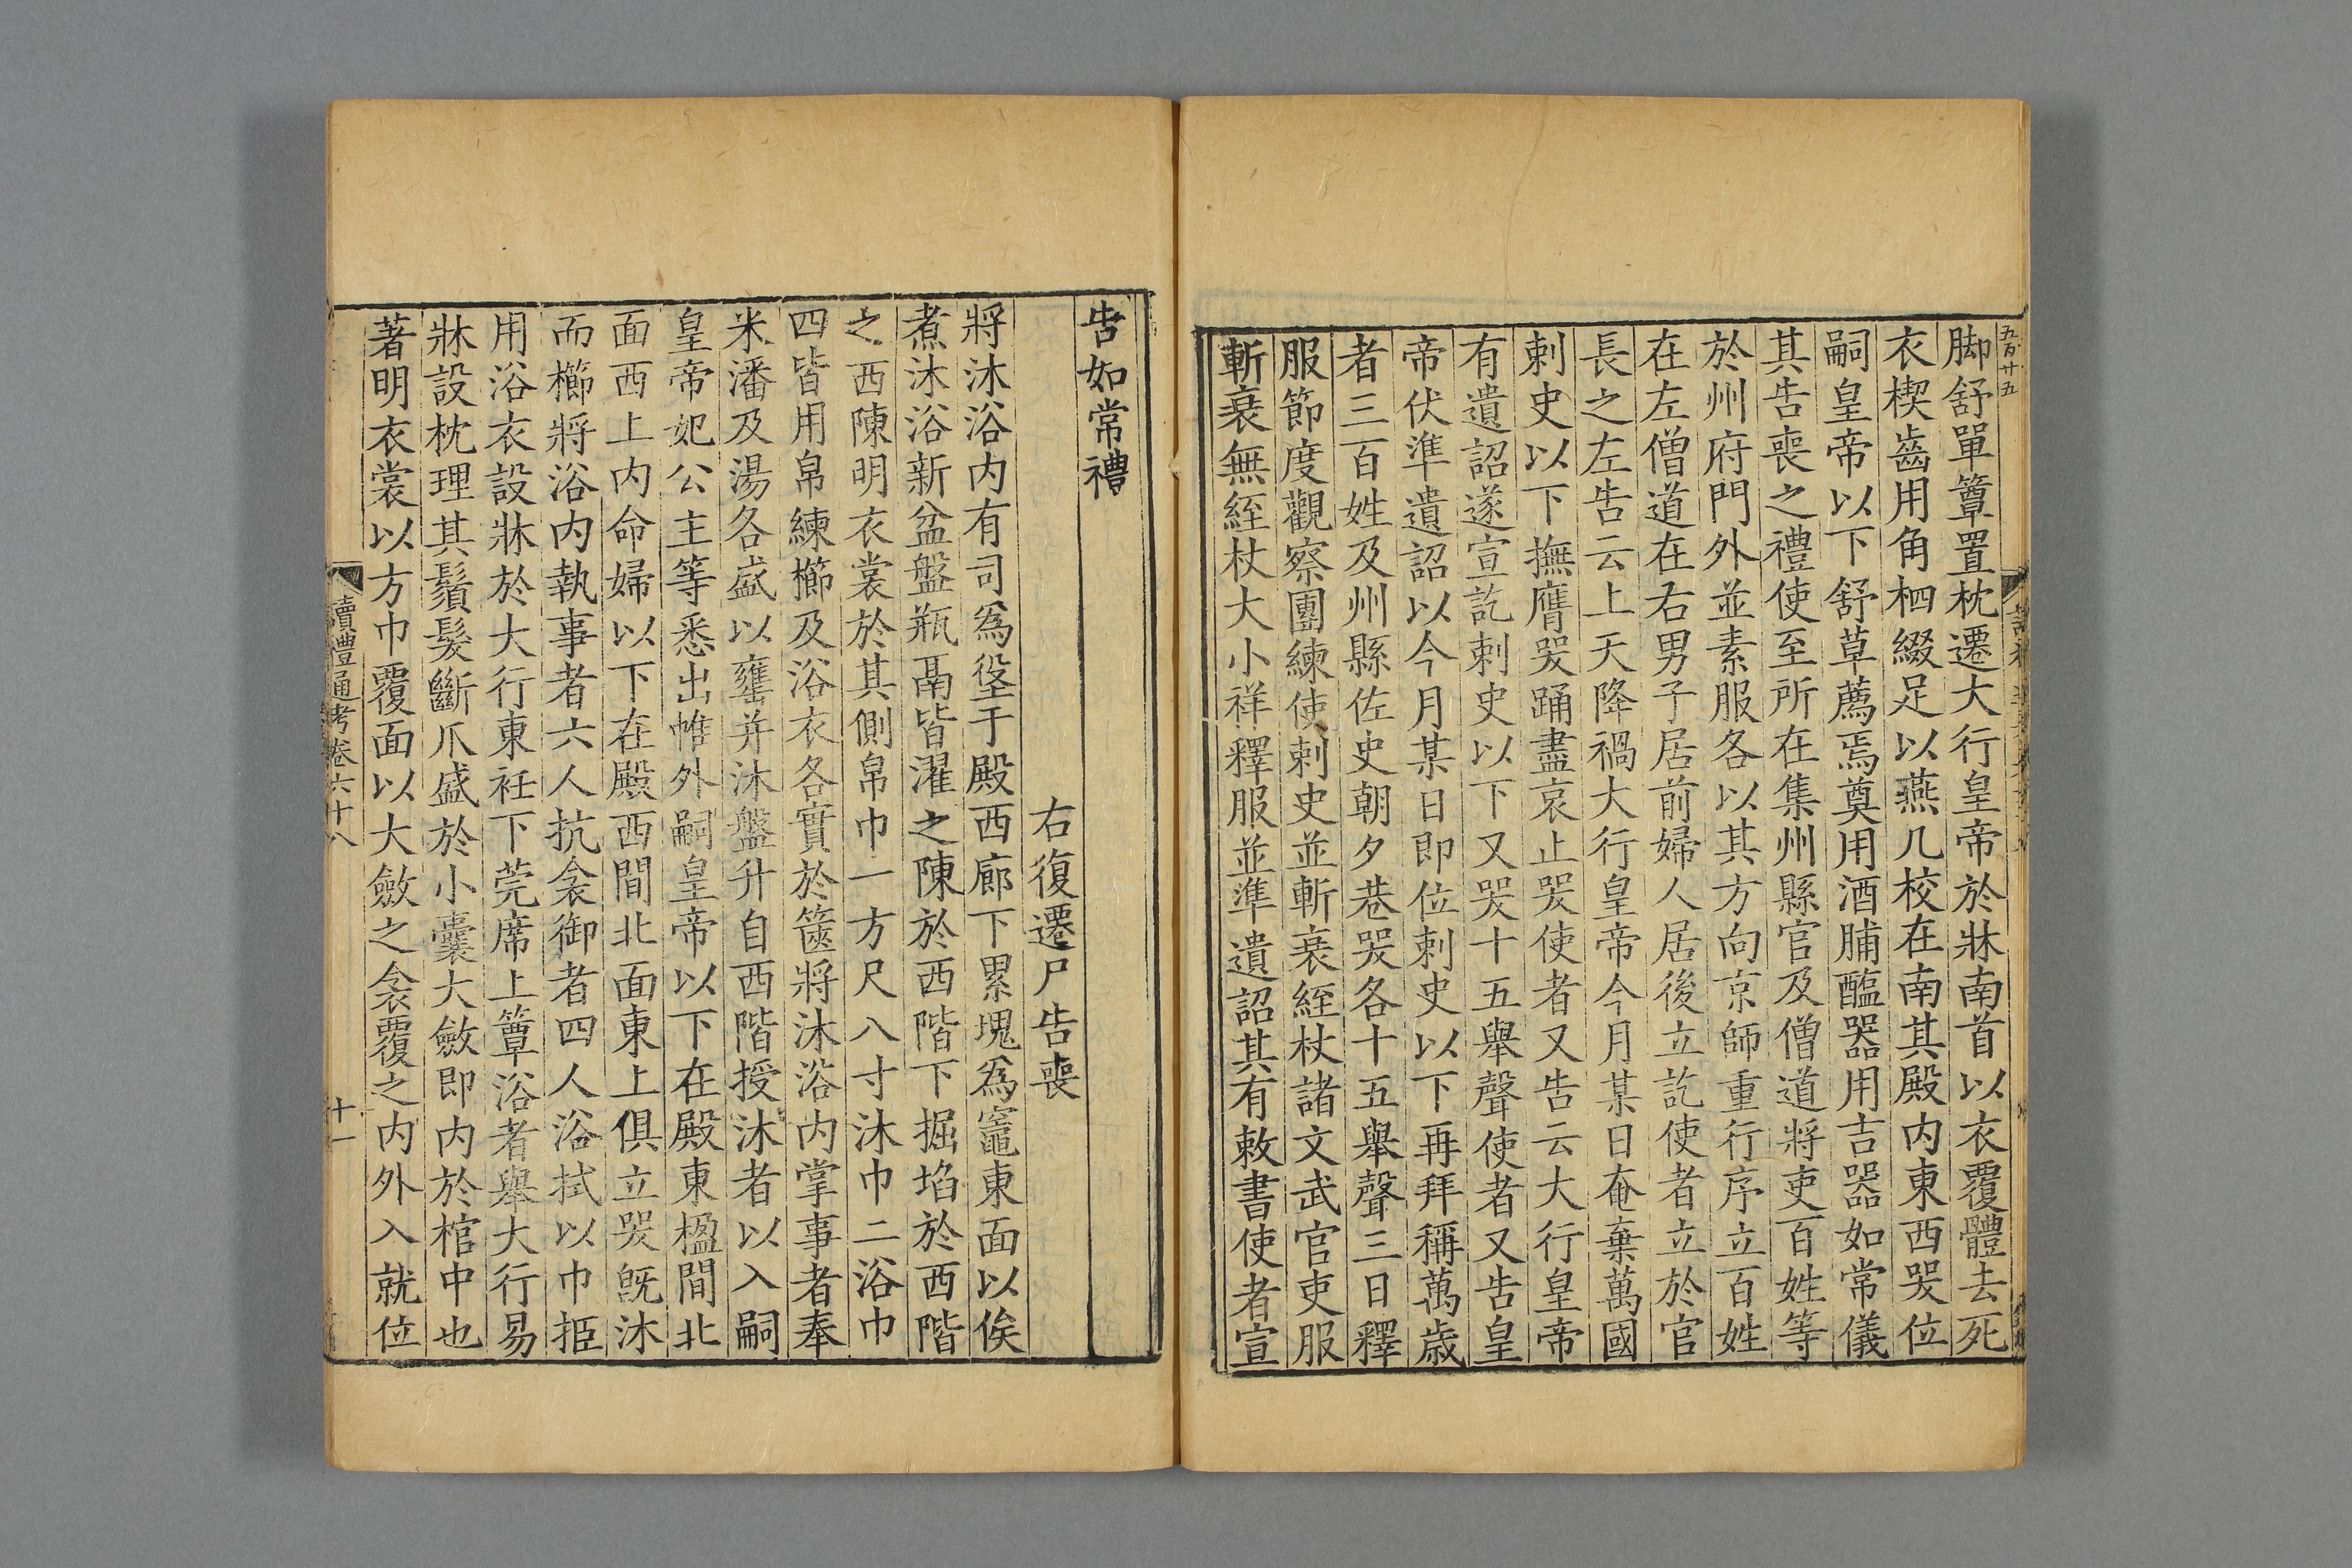 五百廿五
脚舒單簟置枕遷大行皇帝於牀南首以衣覆體去死
衣楔齒用角柶綴足以燕几校在南其殿内東西哭位
嗣皇帝以下舒草薦焉奠用酒脯醢器用吉器如常儀
其告喪之禮使至所在集州縣官及僧道將吏百姓等
於州府門外並素服各以其方向京師重行序立百姓
在左僧道在右男子居前婦人居後立訖使者立於官
長之左告云上天降禍大行皇帝今月某日奄棄萬國
刺史以下撫膺哭踊盡哀止哭使者又告云大行皇帝
有遺詔遂宣訖刺史以下又哭十五舉聲使者又告皇
帝伏準遺詔以今月某日即位刺史以下再拜稱萬歳
者三百姓及州縣佐史朝夕巷哭各十五舉聲三日釋
服節度觀察團練使刺史並斬衰絰杖諸文武官吏服
斬衰無絰杖大小祥釋服並準遺詔其有敕書使者宣
告如常禮
右復遷尸告喪
將沐浴内有司爲垼于殿西廊下累塊爲竈東面以俟
煮沐浴新盆盤瓶鬲皆濯之陳於西階下掘坎於西階
之西陳明衣裳於其側帛巾一方尺八寸沐巾二浴巾
四皆用帛練櫛及浴衣各實於篋將沐浴内掌事者奉
米潘及湯各盛以罋并沐盤升自西階授沐者以入嗣
皇帝妃公主等悉出帷外嗣皇帝以下在殿東楹間北
面西上内命婦以下在殿西間北面東上俱立哭旣沐
而櫛將浴内執事者六人抗衾御者四人浴拭以巾挋
用浴衣設牀於大行東衽下莞席上簟浴者舉大行易
牀設枕理其鬚髮斷爪盛於小囊大斂即内於棺中也
著明衣裳以方巾覆面以大斂之衾覆之内外入就位
讀禮通考卷六十八
十一